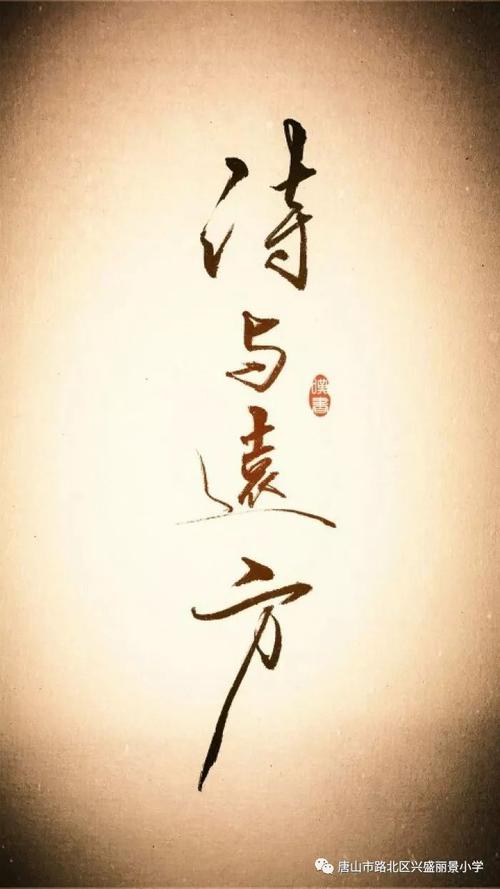 诗与遠方
漢書
唐山市路北区兴盛丽景小学